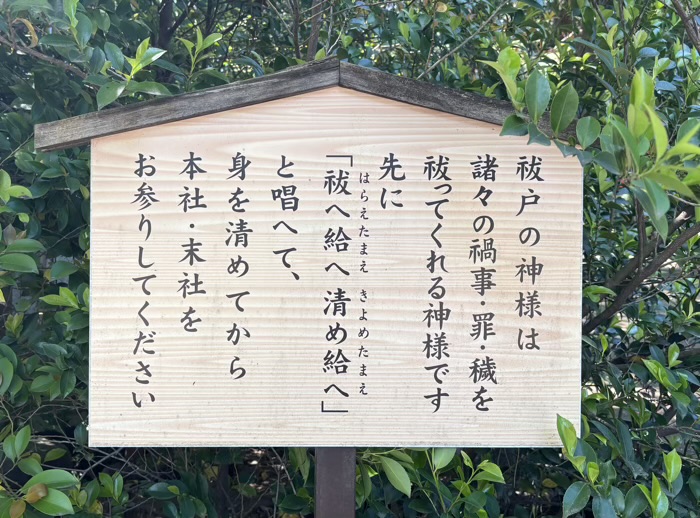 祓戸の神様は
諸々の禍事・罪・穢を
祓ってくれる神様です
先に
「祓へ給へ清め給へ」
はらえたまえ きよめたまえ
と唱へて、
身を清めてから
本社・末社を
お参りしてください